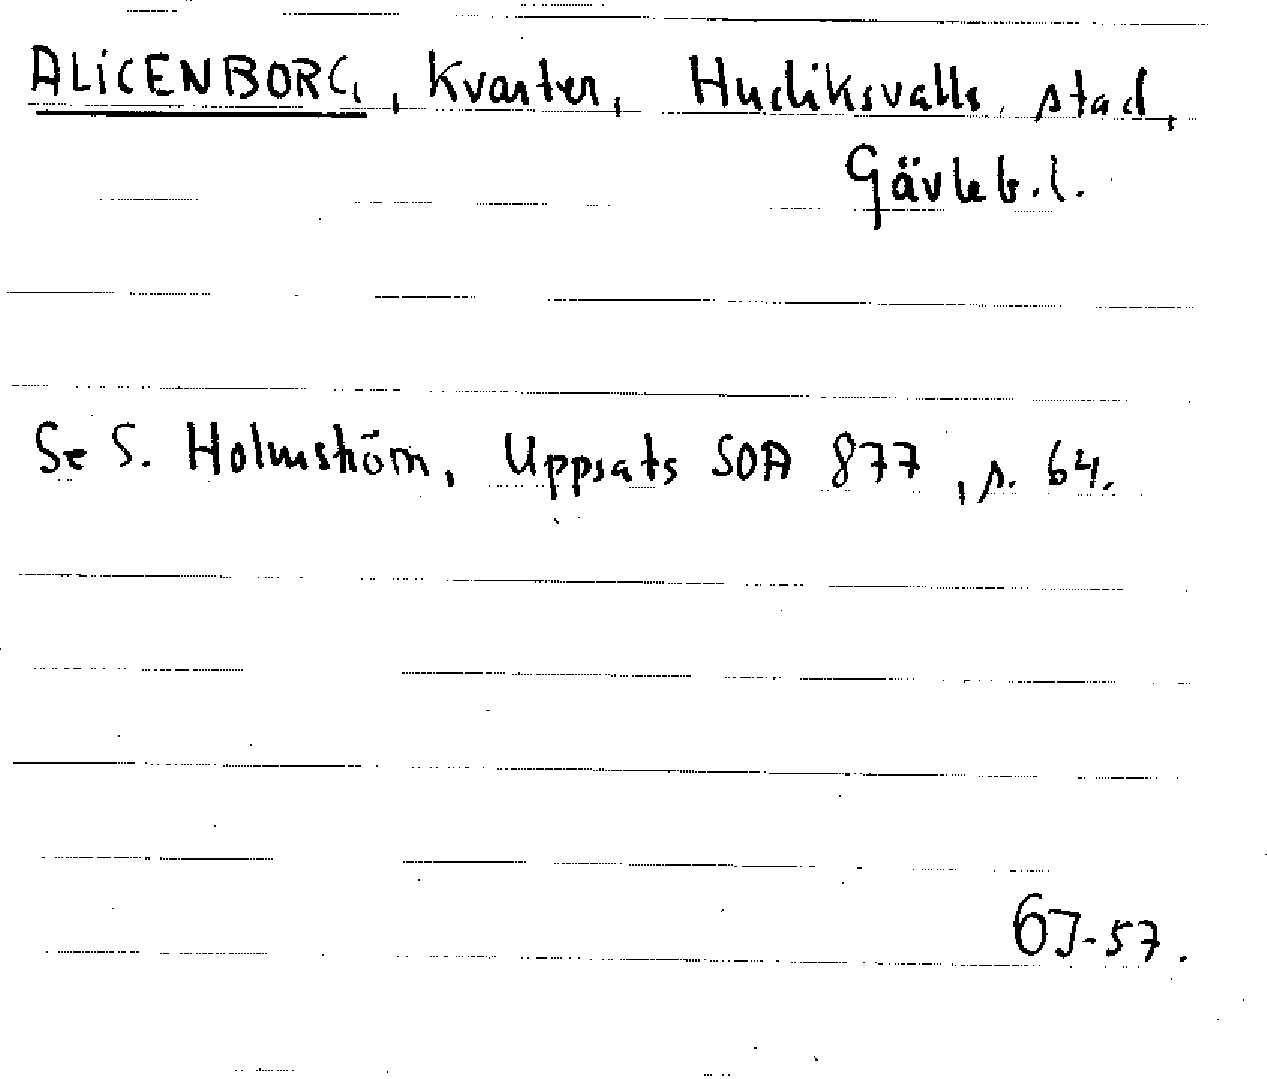 ALICENBORG, Kvarter, Hudiksvalls stad,
Gävleb.l.
Se S. Holmström, Uppsats SOA 877, s. 64.
GJ-57.